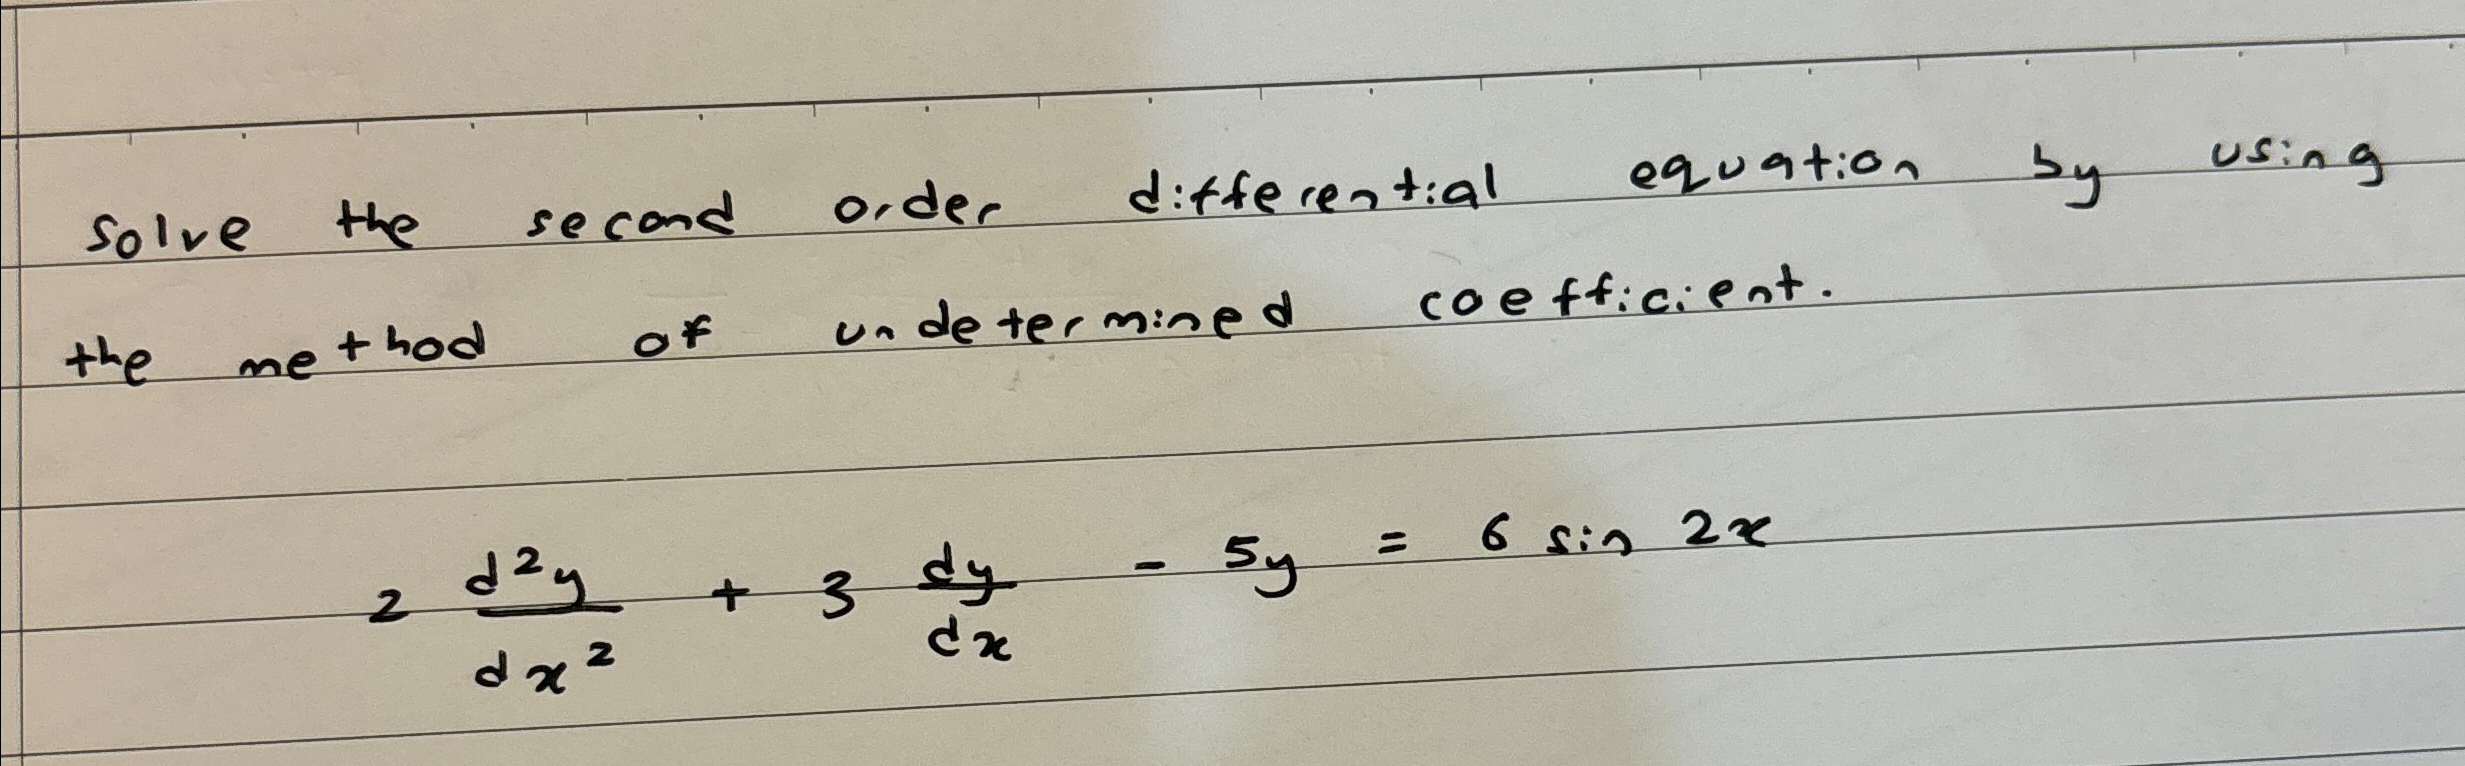 solve the second order differential equation by using
the method of undetermined coefficient.
2 d²y/dx² + 3 dy/dx - 5y = 6 sin 2x